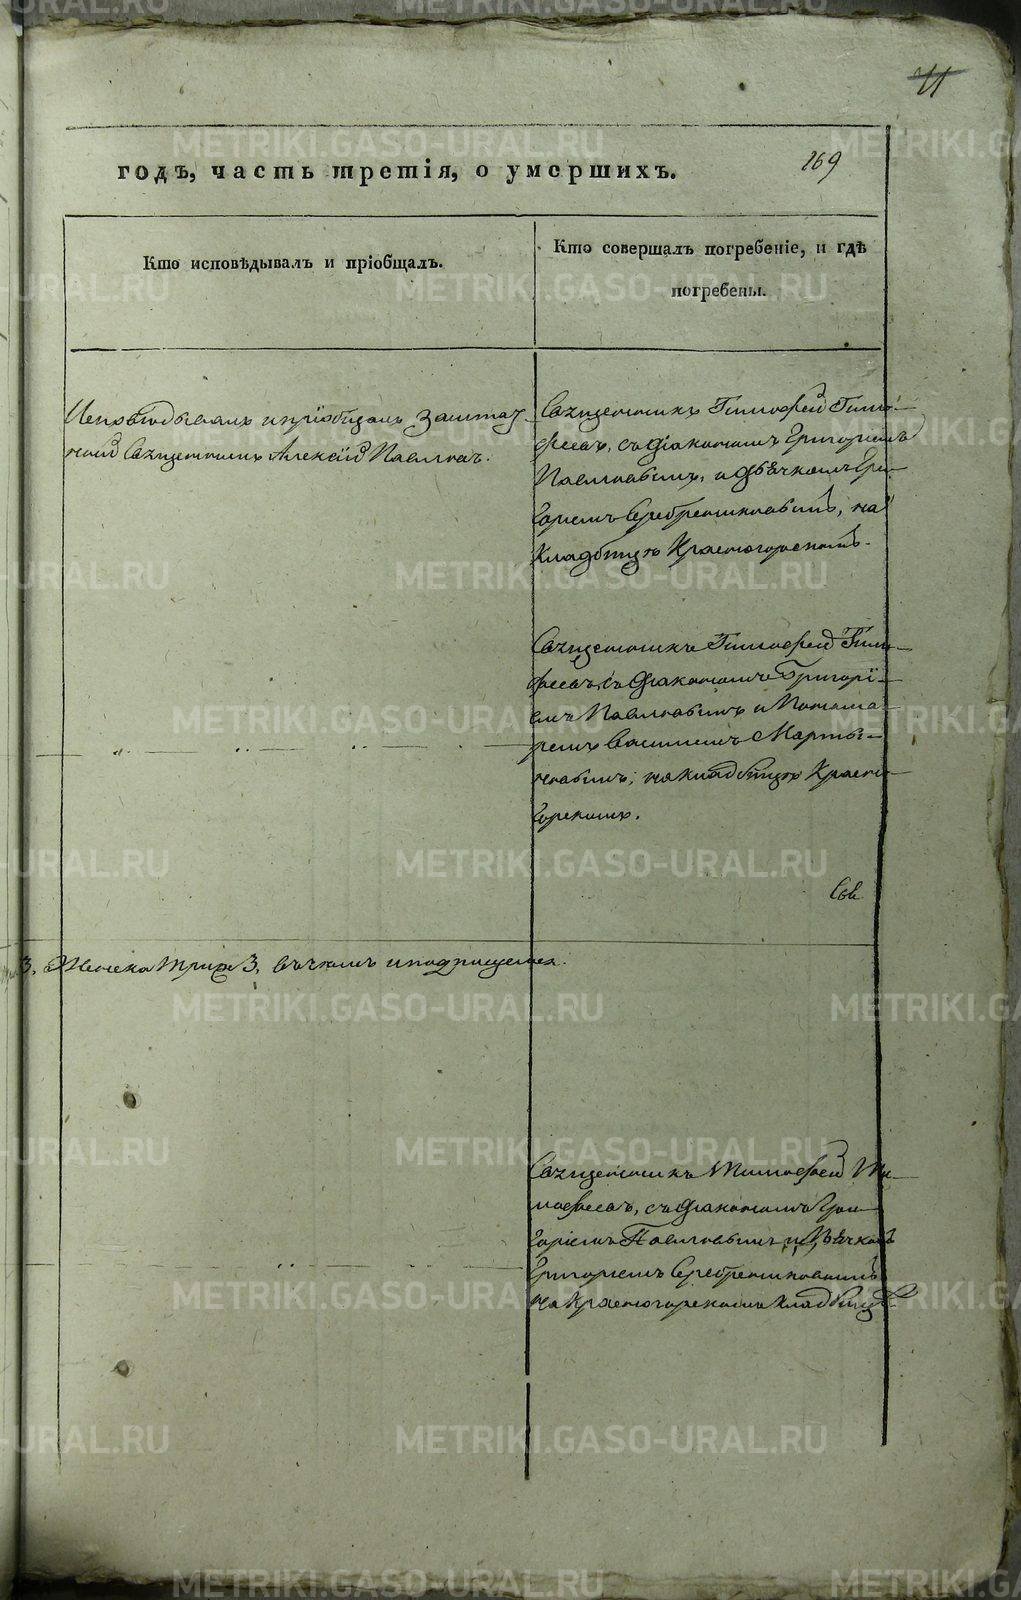 11
169
годъ, часть третія, о умершихъ.
Кто исповѣдывалъ и пріобщалъ.
Кто совершалъ погребеніе, и гдѣ
погребены.
Исповѣдывалъ и пріобщалъ Заштат-
ной Священникъ Алексій Павловъ.
Священникъ Тимофей Тимо-
феевъ, съ діакономъ Григоріемъ
Павловымъ, и дьячкомъ Гри-
горіемъ Серебренниковымъ, на
Кладбищѣ Красногорскомъ.
Священникъ Тимофей Тимо-
феевъ, съ Діакономъ Григорі-
емъ Павловымъ и Понома-
ремъ Василіемъ Марты-
новымъ; на кладбищѣ Красно-
горскомъ.
3, Женска трое 3, въ чемъ и подпишемся.
Священникъ Тимофей Ти-
мофеевъ, съ діакономъ Гри-
горіемъ Павловымъ и дьячкомъ
Григоріемъ Серебренниковымъ
на Красногорскомъ кладбищѣ.
METRIKI.GASO-URAL.RU